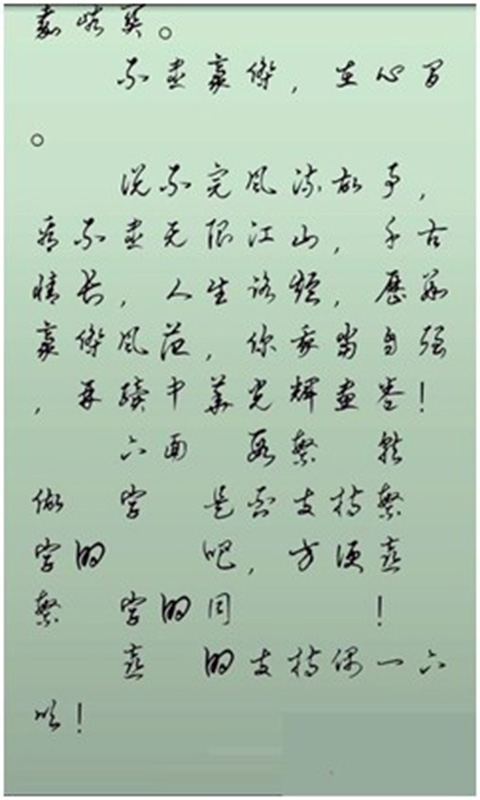 嘉峪关。
不尽豪杰，在心间
。
说不完风流故事，
看不尽无限江山，千古
情长，人生路短，历数
豪杰风范，你我当自强
，再续中华光辉画卷！
六面 段繁 能
做 字 是否支持繁
字的 吧，方便喜
繁 字的同 ！
喜 的支持偶一六
以！